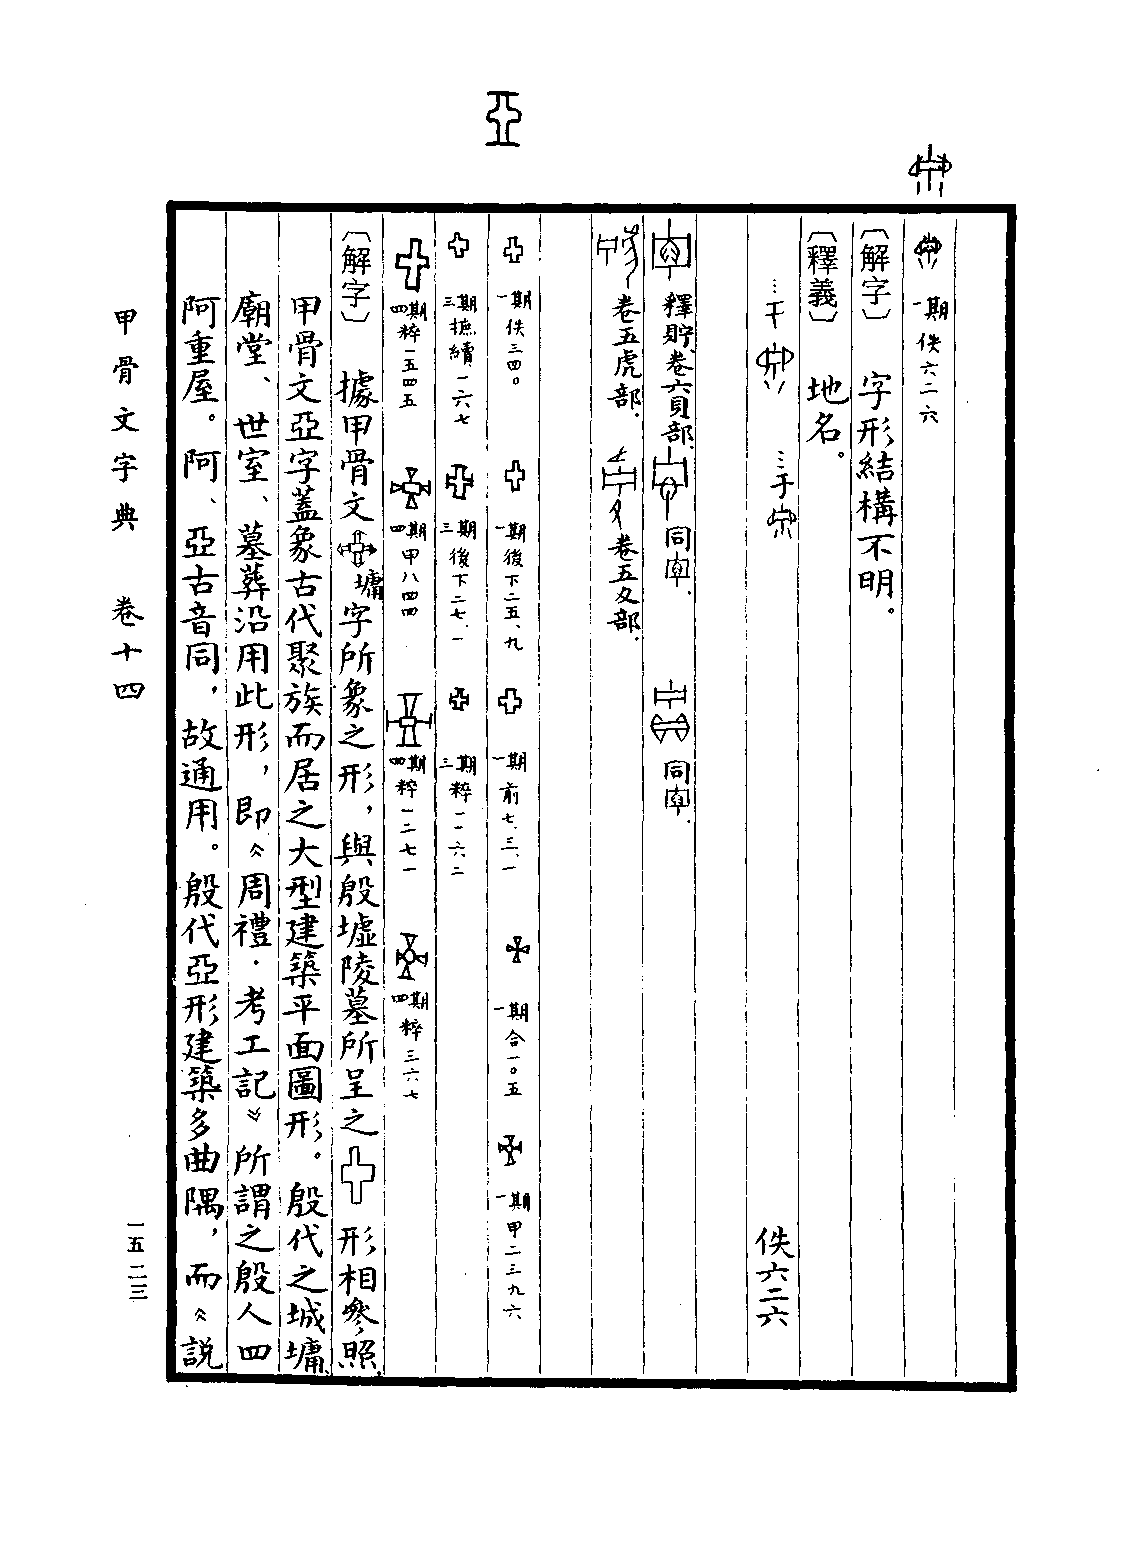 亞
一期佚六二六
〔解字〕 字形結構不明。
〔釋義〕 地名。
…于 …于 佚六二六
釋貯,卷六貝部. 同 同
卷五虎部. 卷五夊部.
一期佚三四〇 一期後下二五、九 一期前七、三、一 一期合一〇五 一期甲二三九六
三期摭續一六七 三期後下二七、一 三期粹一一六二
四期粹一五四五 四期甲八四四 四期粹一二七一 四期粹三六七
〔解字〕 據甲骨文墉字所象之形，與殷墟陵墓所呈之形相參照，
甲骨文亞字蓋象古代聚族而居之大型建築平面圖形。殷代之城墉、
廟堂、世室、墓葬沿用此形，即《周禮·考工記》所謂之殷人四
阿重屋。阿、亞古音同，故通用。殷代亞形建築多曲隅，而《說
甲骨文字典 卷十四
一五二三